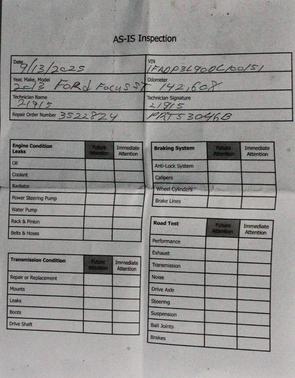 AS-IS Inspection
Date 9/13/2025 VIN
Year, Make, Model 2013 Ford Focus ST Odometer 142,608
Technician Name 21915 Technician Signature 21915
Repair Order Number 3522824 PRT53046B
Engine Condition Future Attention Immediate Attention
Leaks
Oil
Coolant
Radiator
Power Steering Pump
Water Pump
Rack & Pinion
Belts & Hoses
Transmission Condition Future Attention Immediate Attention
Repair or Replacement
Mounts
Leaks
Boots
Drive Shaft
Braking System Future Attention Immediate Attention
Anti-Lock System
Calipers
Wheel Cylinders
Brake Lines
Road Test Future Attention Immediate Attention
Performance
Exhaust
Transmission
Noise
Drive Axle
Steering
Suspension
Ball Joints
Brakes